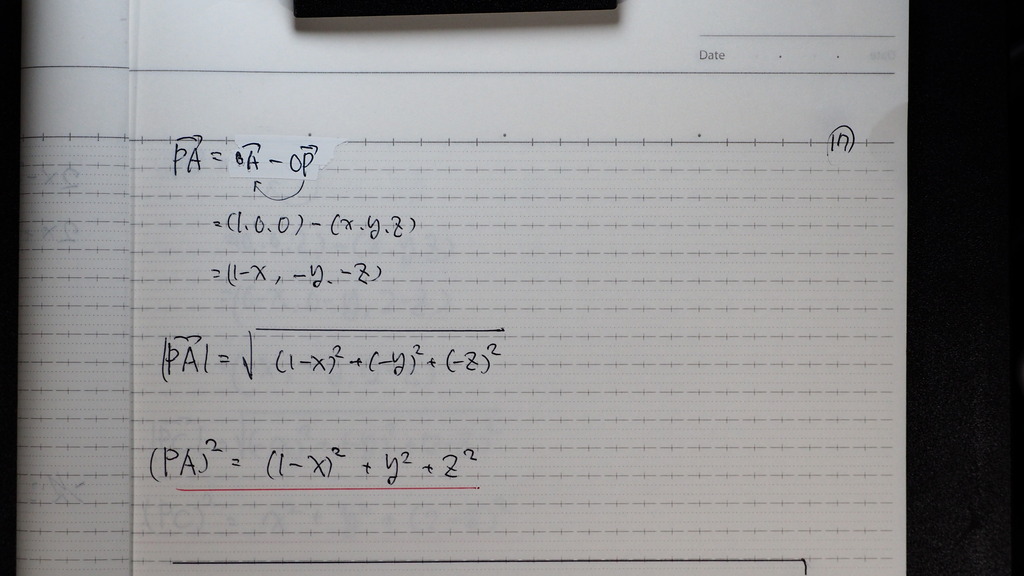 Date
(17)
PA = OA - OP
= (1.0.0) - (x.y.z)
= (1-x, -y. -z)
|PA| = √(1-x)² + (-y)² + (-z)²
(PA)² = (1-x)² + y² + z²